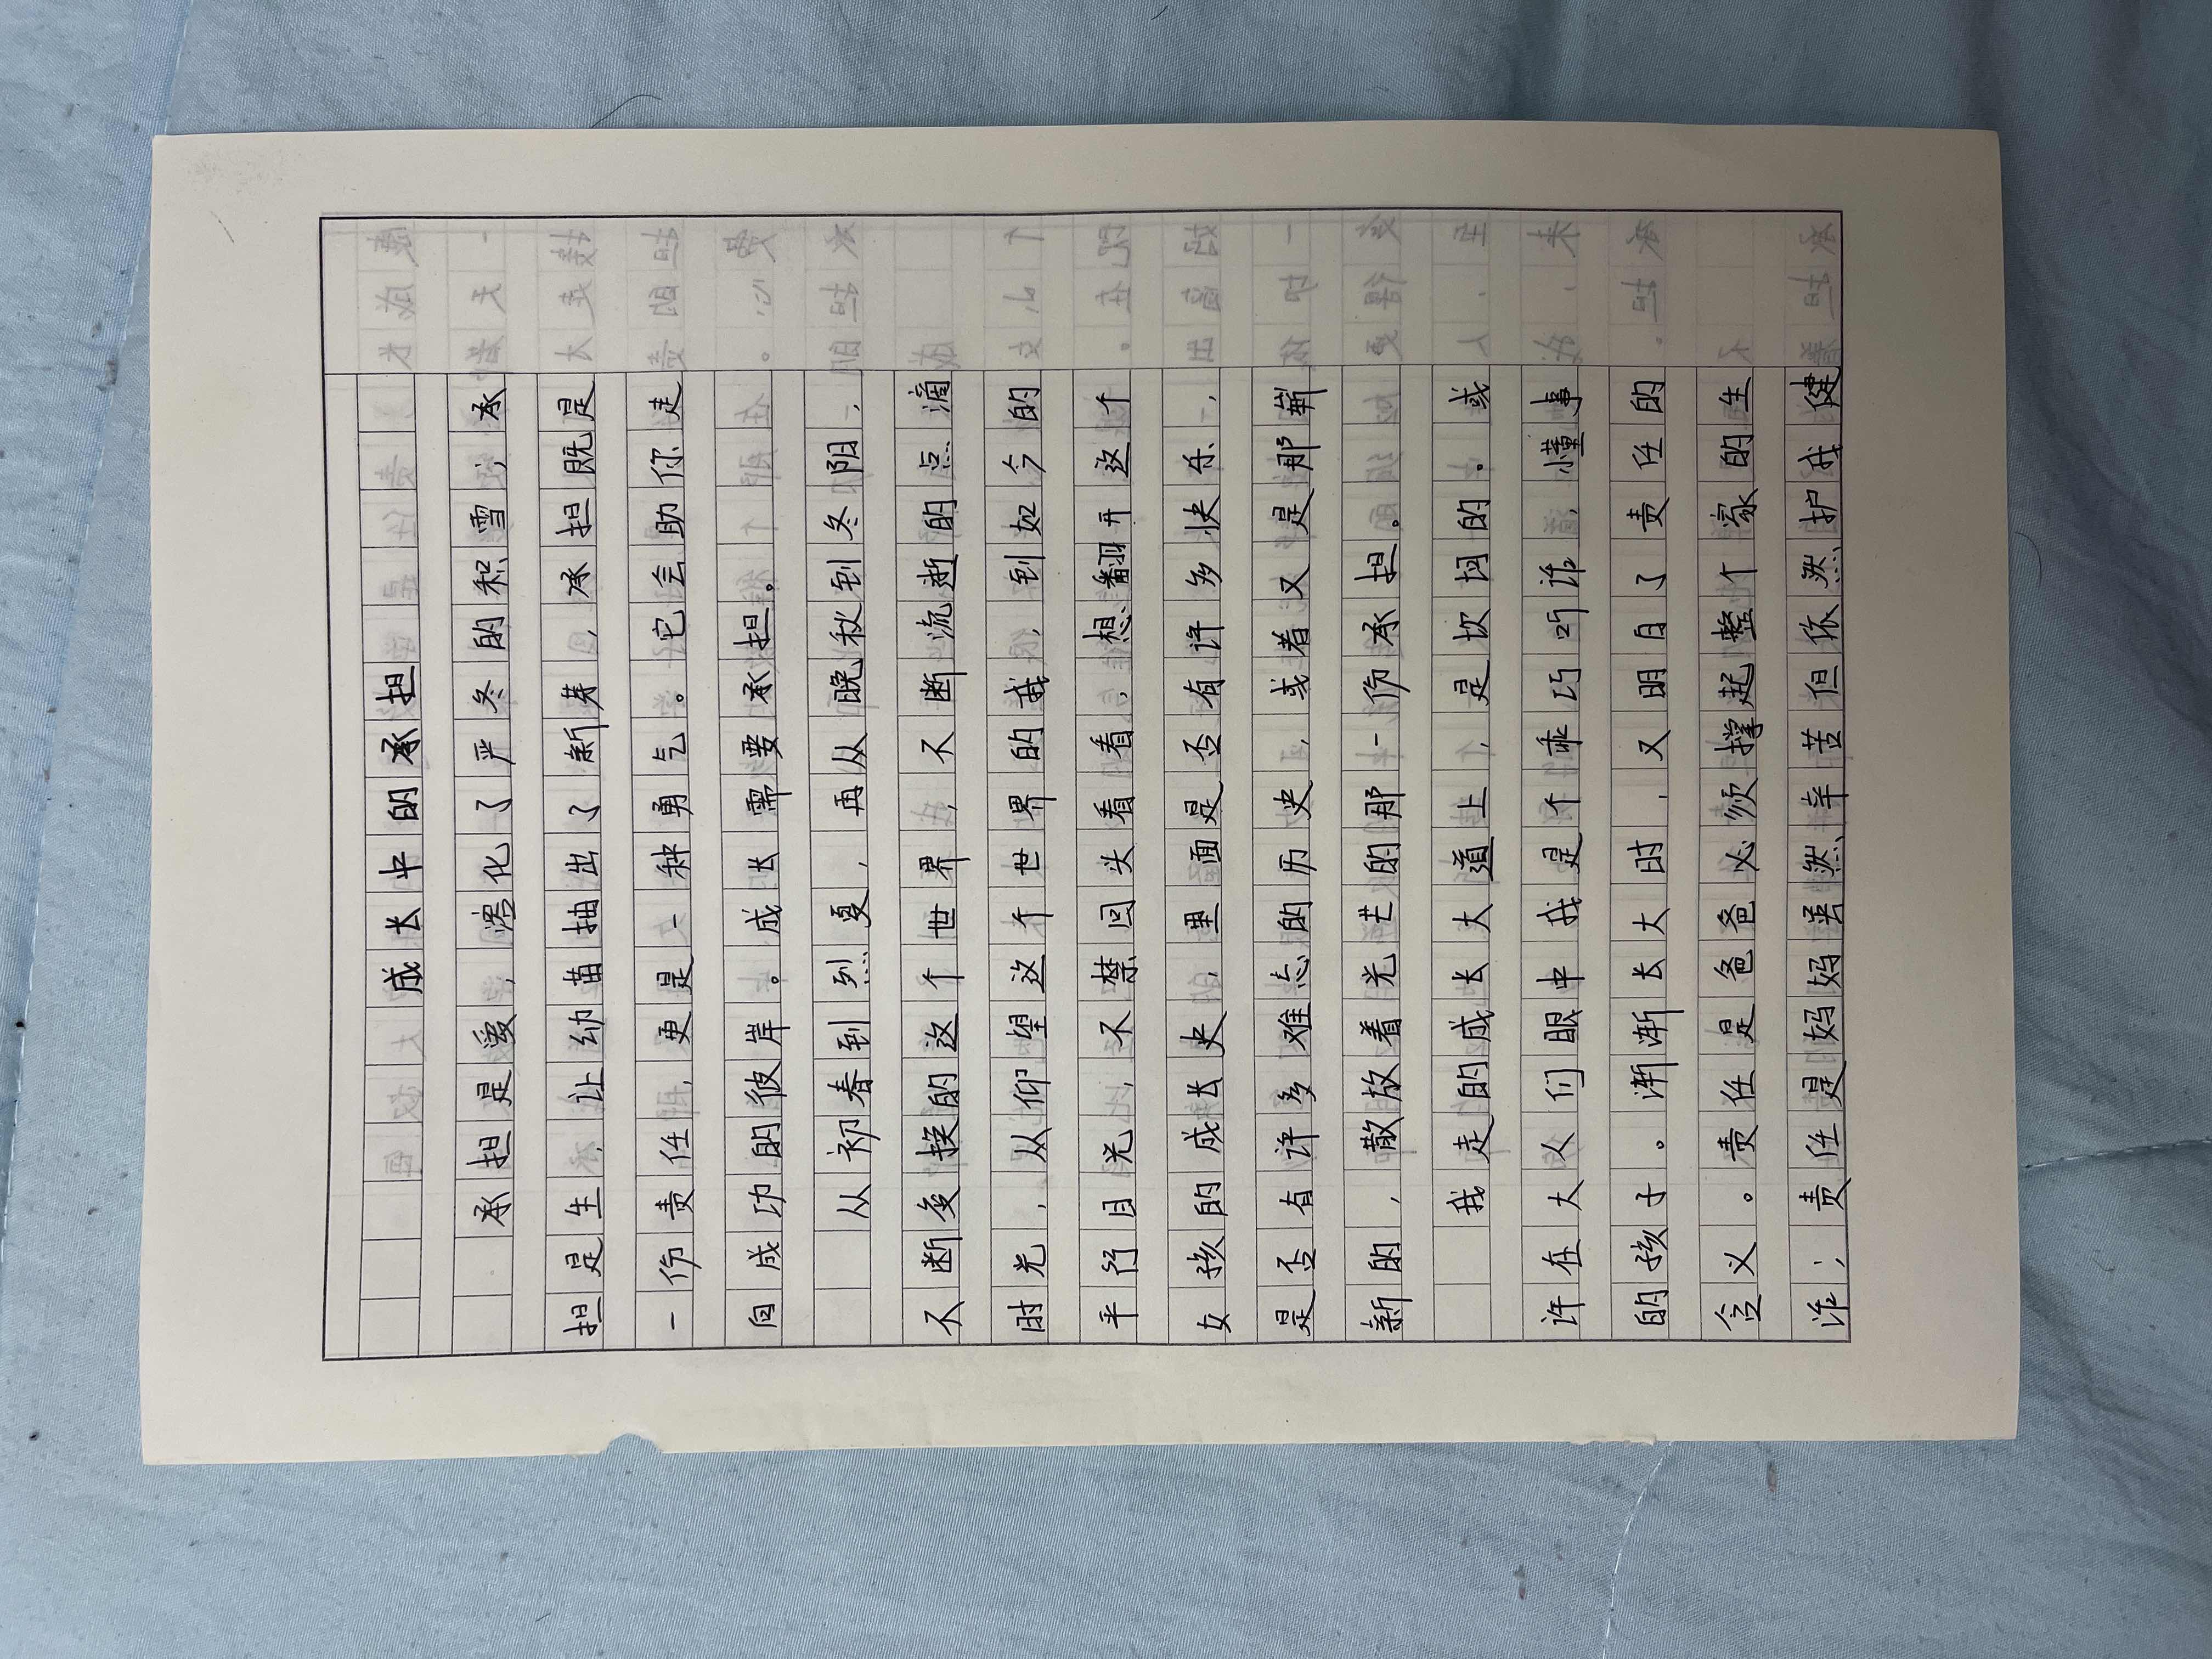 成长中的承担
承担是爱，溶化了严冬的积雪；承
担是生，让幼苗抽出了新芽，承担既是
一份责任，更是一种勇气。它会助你走
向成功的彼岸。成长需要承担。
从初春到烈夏，再从晚秋到冬阴，
不断变换的这个世界，不断流逝的点滴
时光，从仰望这个世界的我，到如今的
平行目光，不禁回头看看，想翻开这个
女孩的成长史，里面是否有许多快乐，
是否有许多难忘的历史，或者又是那崭
新的，散放着光芒的那一份承担。
我走的成长大道上，是坎坷的。或
许在大人们眼中我是个乖巧听话，懂事
的孩子。渐渐长大时，又明白了责任的
含义。责任是爸爸必须撑起整个家的生
活；责任是妈妈虽然辛苦但依然护我健